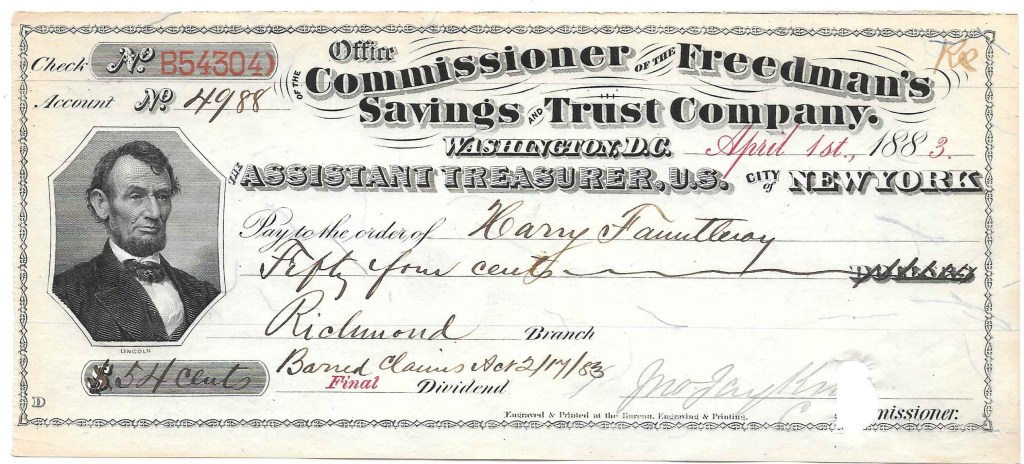 Office
OF THE Commissioner OF THE Freedman's
Check No. B54304
Savings AND Trust Company.
Account No. 4988
WASHINGTON, D.C. April 1st., 1883.
THE ASSISTANT TREASURER, U.S. CITY of NEW YORK
Pay to the order of Harry Fauntleroy
Fifty four cents DOLLARS
Richmond Branch
LINCOLN
$54 cents
Barred Claims Act 2/17/83
Final Dividend
Jno Jay Kn
D
Engraved & Printed at the Bureau, Engraving & Printing.
missioner.